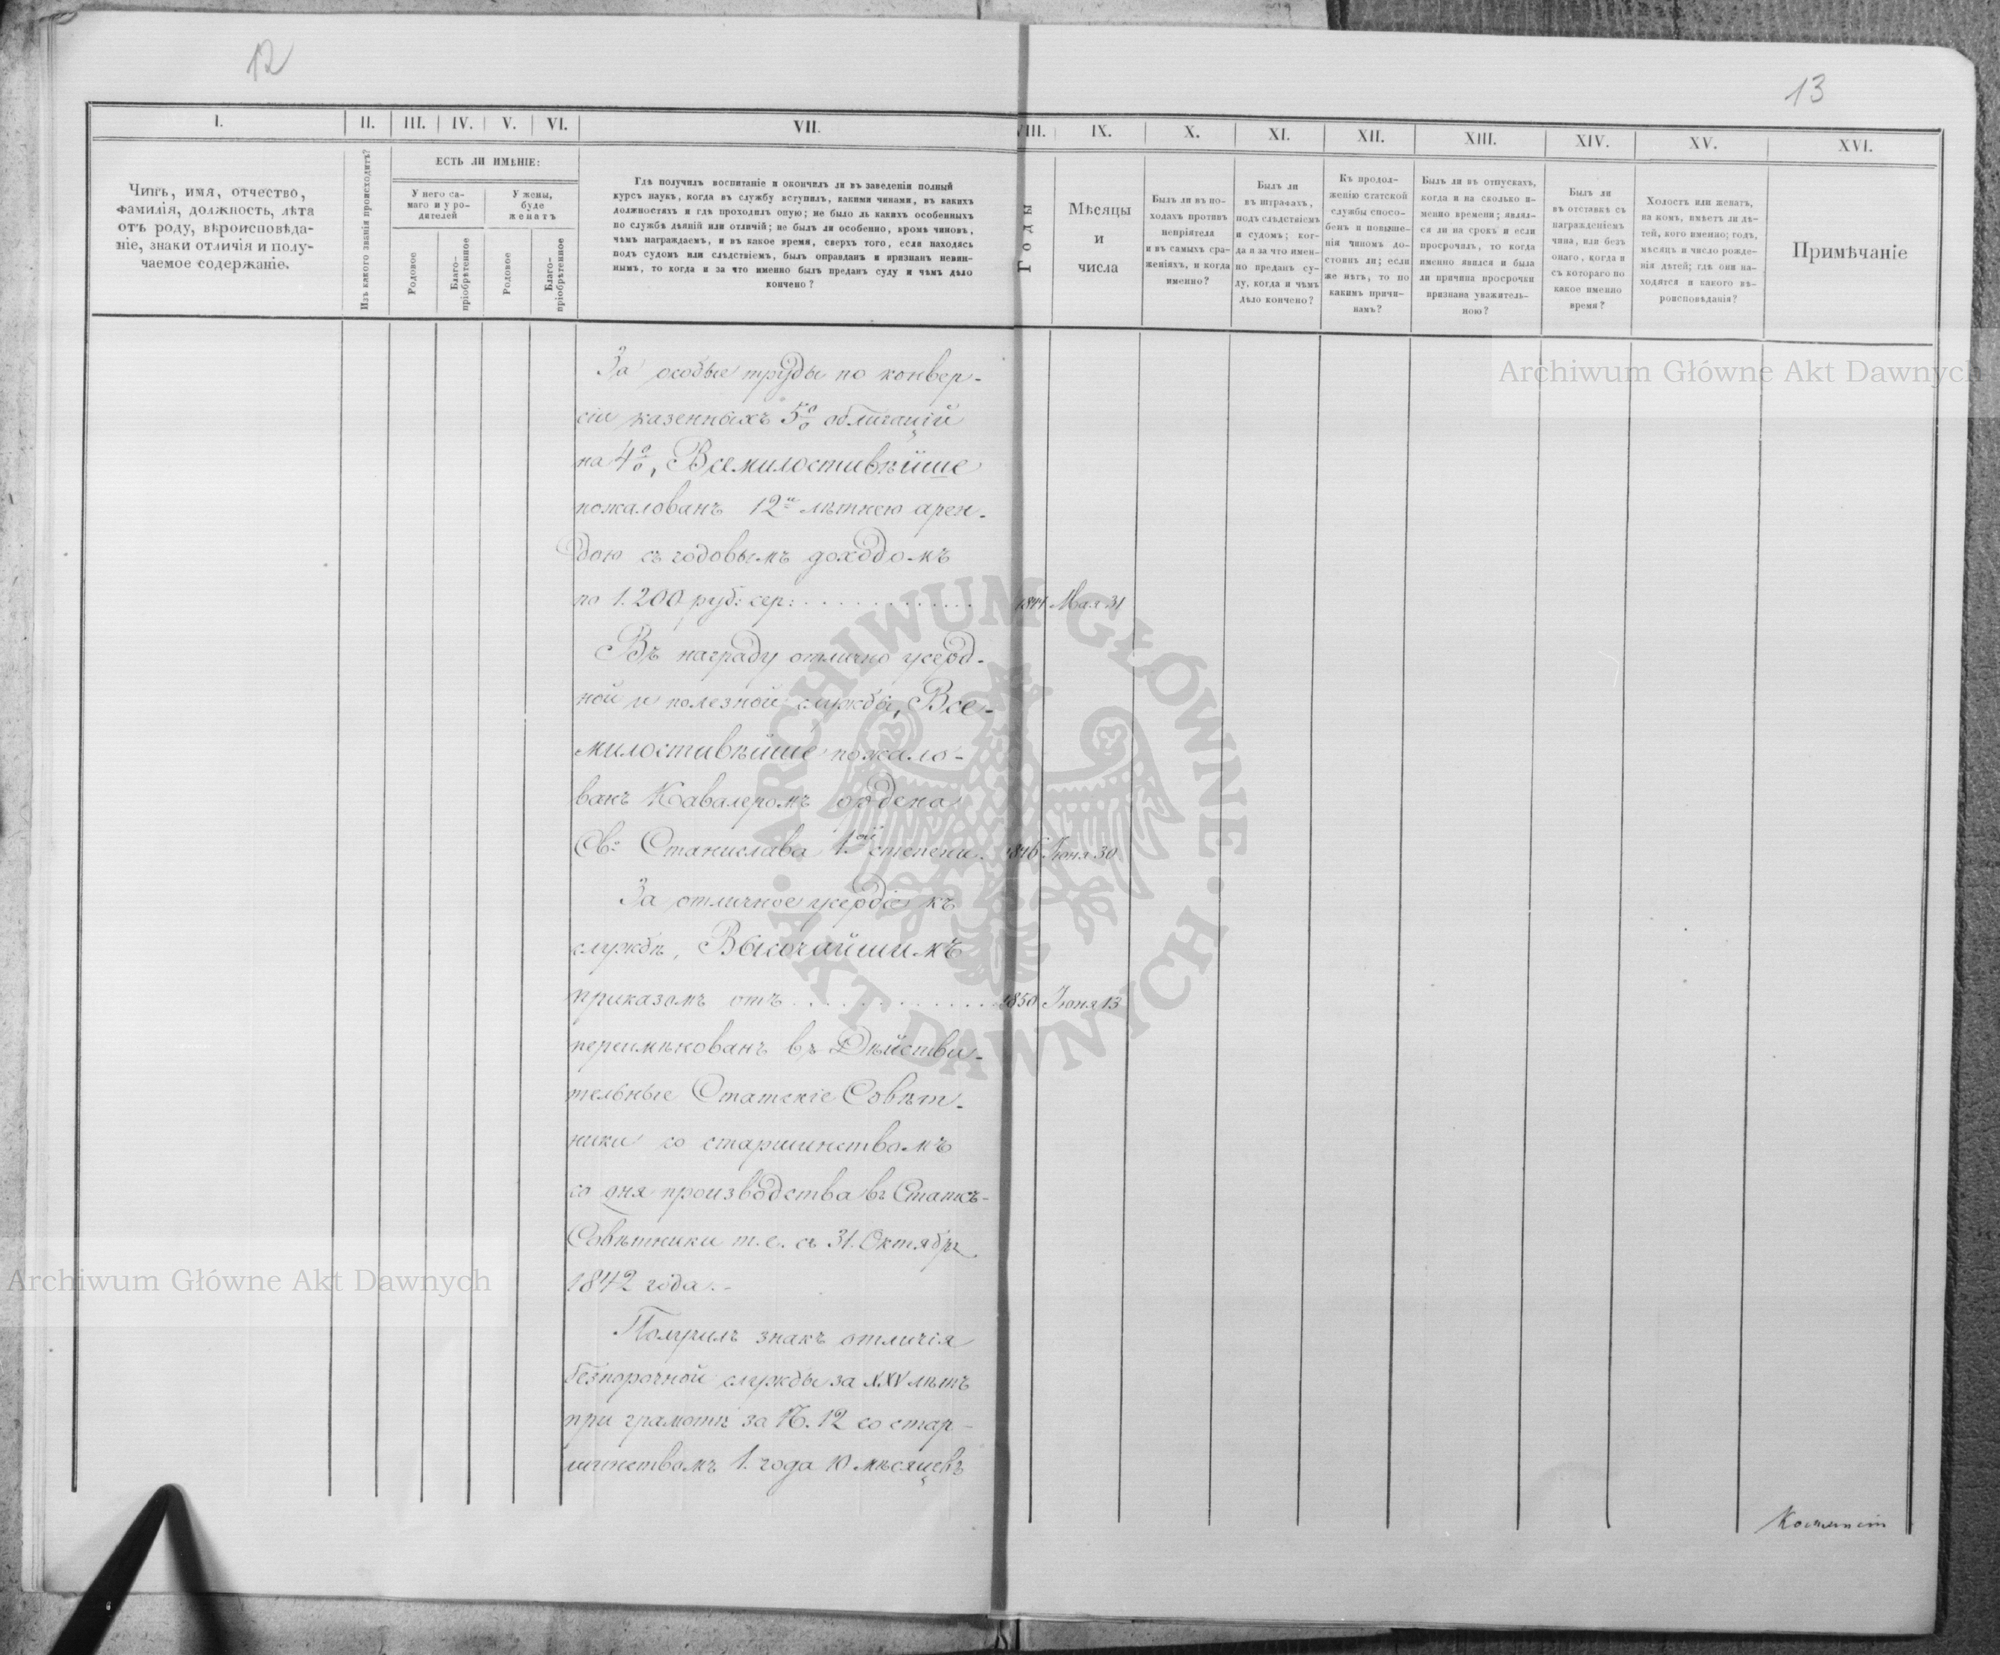 12
13
I.
II.
III.
IV.
V.
VI.
VII.
VIII.
IX.
X.
XI.
XII.
XIII.
XIV.
XV.
XVI.
Чинъ, имя, отчество,
фамилія, должность, лѣта
отъ роду, вѣроисповѣда-
ніе, знаки отличія и полу-
чаемое содержаніе.
Изъ какого званія происходитъ?
ЕСТЬ ЛИ ИМѢНІЕ:
У него са-
маго и у ро-
дителей
У жены,
буде
женатъ
Родовое
Благо-
пріобрѣтенное
Родовое
Благо-
пріобрѣтенное
Гдѣ получилъ воспитаніе и окончилъ ли въ заведеніи полный
курсъ наукъ, когда въ службу вступилъ, какими чинами, въ какихъ
должностяхъ и гдѣ проходилъ оную; не было ль какихъ особенныхъ
по службѣ дѣяній или отличій; не былъ ли особенно, кромѣ чиновъ,
чѣмъ награждаемъ, и въ какое время, сверхъ того, если находясь
подъ судомъ или слѣдствіемъ, былъ оправданъ и признанъ невин-
нымъ, то когда и за что именно былъ преданъ суду и чѣмъ дѣло
кончено?
Годы
Мѣсяцы
и
числа
Былъ ли въ по-
ходахъ противъ
непріятеля
и въ самыхъ сра-
женіяхъ, и когда
именно?
Былъ ли
въ штрафахъ,
подъ слѣдствіемъ
и судомъ; ког-
да и за что имен-
но преданъ су-
ду, когда и чѣмъ
дѣло кончено?
Къ продол-
женію статской
службы спосо-
бенъ и повыше-
нія чиномъ до-
стоинъ ли; если
же нѣтъ, то по
какимъ причи-
намъ?
Былъ ли въ отпускахъ,
когда и на сколько и-
менно времени; являл-
ся ли на срокъ и если
просрочилъ, то когда
именно явился и была
ли причина просрочки
признана уважитель-
ною?
Былъ ли
въ отставкѣ съ
награжденіемъ
чина, или безъ
онаго, когда и
съ котораго по
какое именно
время?
Холостъ или женатъ,
на комъ, имѣетъ ли дѣ-
тей, кого именно; годъ,
мѣсяцъ и число рожде-
нія дѣтей; гдѣ они на-
ходятся и какого вѣ-
роисповѣданія?
Примѣчаніе
За особые труды по конвер-
сіи казенныхъ 5% облигацій
на 4%, Всемилостивѣйше
пожалованъ 12и лѣтнею арен-
дою съ годовымъ доходомъ
по 1.200 руб: сер: 1844 Мая 31
Въ награду отлично усерд-
ной и полезной службы, Все-
милостивѣйше пожало-
ванъ Кавалеромъ ордена
Св: Станислава 1ой степени. 1846 Іюня 30
За отличное усердіе къ
службѣ, Высочайшимъ
приказомъ отъ 1850 Іюня 13
переименованъ въ Дѣйстви-
тельные Статскіе Совѣт-
ники со старшинствомъ
со дня производства въ Статск-
Совѣтники т.е. съ 31. Октября
1842 года.-
Получилъ знакъ отличія
безпорочной службы за XXV лѣтъ
при грамотѣ за N. 12 со стар-
шинствомъ 1. года 10 мѣсяцевъ
Archiwum Główne Akt Dawnych
Archiwum Główne Akt Dawnych
ARCHIWUM GŁÓWNE AKT DAWNYCH